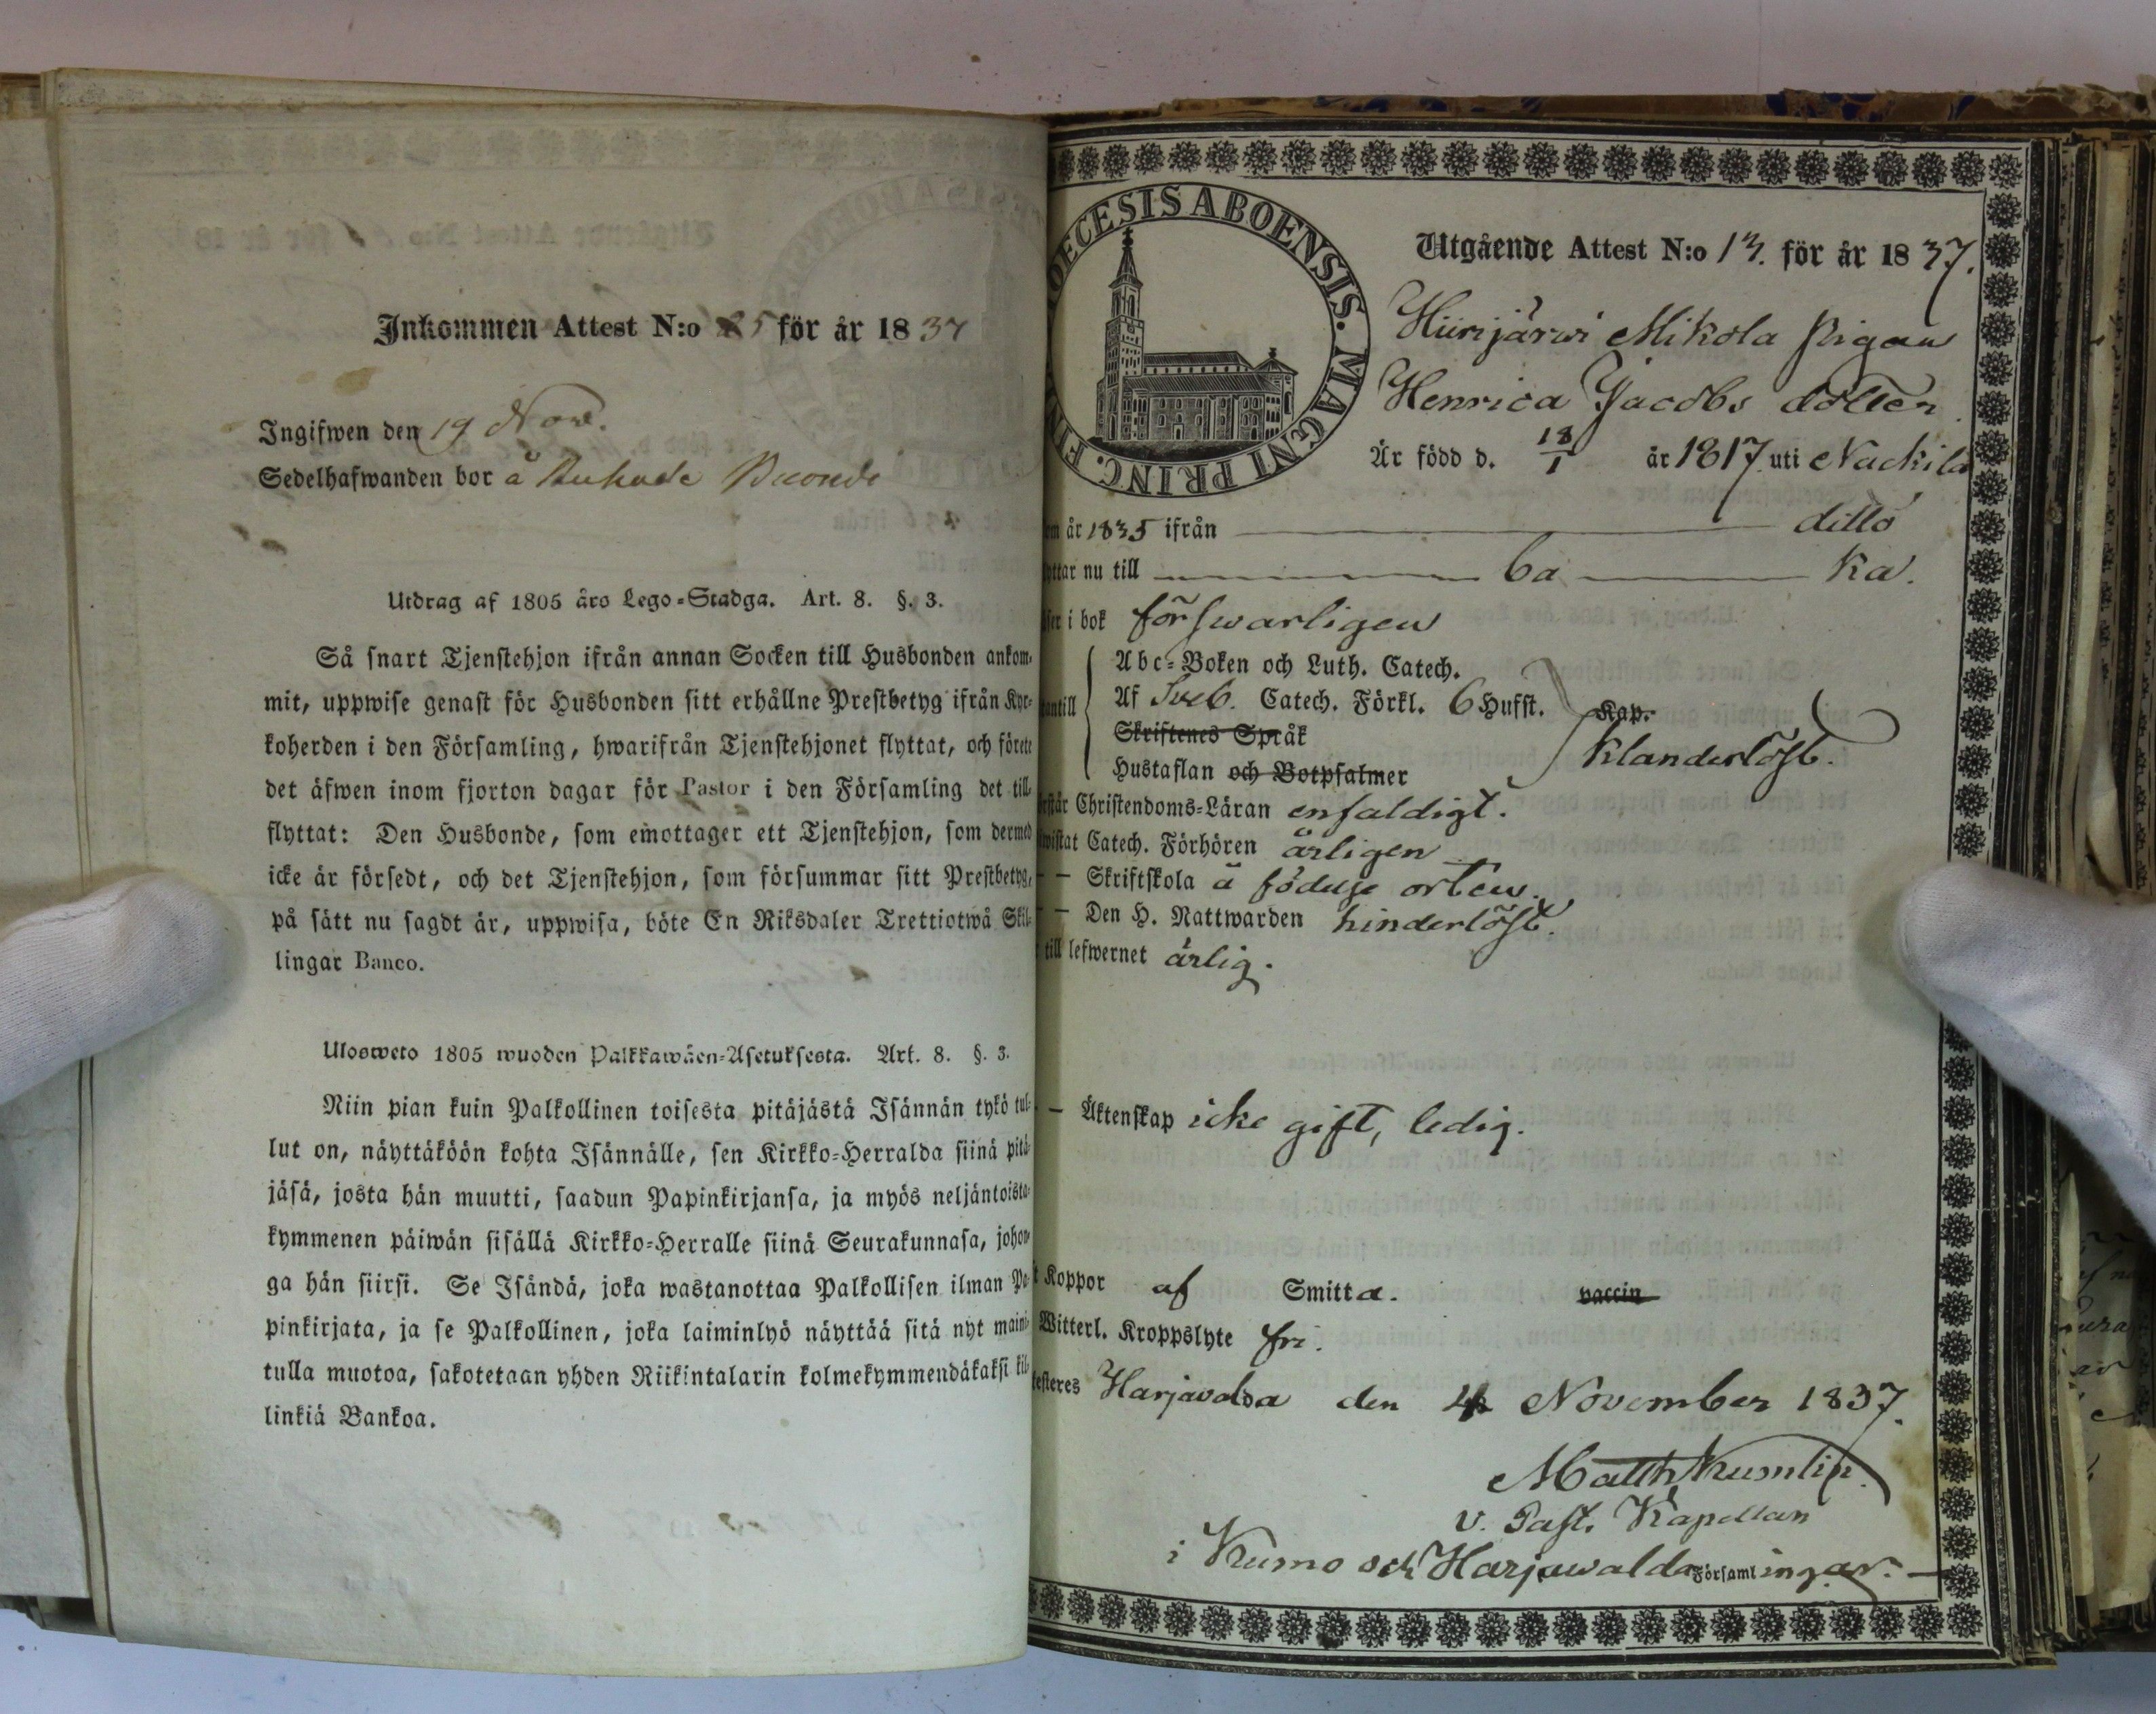 Inkommen Attest N:o 25 för år 1837
Ingifwen den 19 Nov.
Sedelhafwanden bor å
Utdrag af 1805 års Lego-Stadga. Art. 8. §. 3.
Så snart Tjenstehjon ifrån annan Socken till Husbonden ankom-
mit, uppwise genast för Husbonden sitt erhållne Prestbetyg ifrån Kyr-
koherden i den Församling, hwarifrån Tjenstehjonet flyttat, och förete
det äfwen inom fjorton dagar för Pastor i den Församling det till-
flyttat: Den Husbonde, som emottager ett Tjenstehjon, som dermed
icke är försedt, och det Tjenstehjon, som försummar sitt Prestbetyg,
på sätt nu sagdt är, uppwisa, böte En Riksdaler Trettiotwå Skil-
lingar Banco.
Ulosweto 1805 wuoden Palkkawäen-Asetuksesta. Art. 8. §. 3.
Niin pian kuin Palkollinen toisesta pitäjästä Isännän tykö tul-
lut on, näyttäköön kohta Isännälle, sen Kirkko-Herralda siinä pitä-
jäsä, josta hän muutti, saadun Papinkirjansa, ja myös neljäntoista-
kymmenen päiwän sisällä Kirkko-Herralle siinä Seurakunnasa, johon-
ga hän siirsi. Se Isändä, joka wastanottaa Palkollisen ilman Pa-
pinkirjata, ja se Palkollinen, joka laiminlyö näyttää sitä nyt maini-
tulla muotoa, sakotetaan yhden Riikintalarin kolmekymmendäkaksi kil-
linkiä Bankoa.
OECESIS ABOENSIS. MAGNI PRINC. FIN
Utgående Attest N:o 13. för år 1837.
Hiirijärwi Mikola Pigan
Henrica Jacobs dotter
Är född d. 18/1 år 1817 uti Nackila
om år 1835 ifrån ditto
yttar nu till ba ka.
ser i bok förswarligen
antill
Abc-Boken och Luth. Catech.
Af Sveb. Catech. Förkl. 6 Hufst. Kap.
Skriftenes Språk
klanderlöst.
Hustaflan och Botpsalmer
rstår Christendoms-Läran enfaldigt.
wistat Catech. Förhören årligen
— — Skriftskola å föduse orten.
— — Den H. Nattwarden hinderlöst.
till lefwernet ärlig.
— Äktenskap icke gift, ledig.
t Koppor af Smitta. vaccin
Witterl. Kroppslyte fri.
testeres Harjavalda den 4 November 1837.
Matth Kumlin.
v. Past. Kapellan
i Kumo och Harjawalda Församlingar.